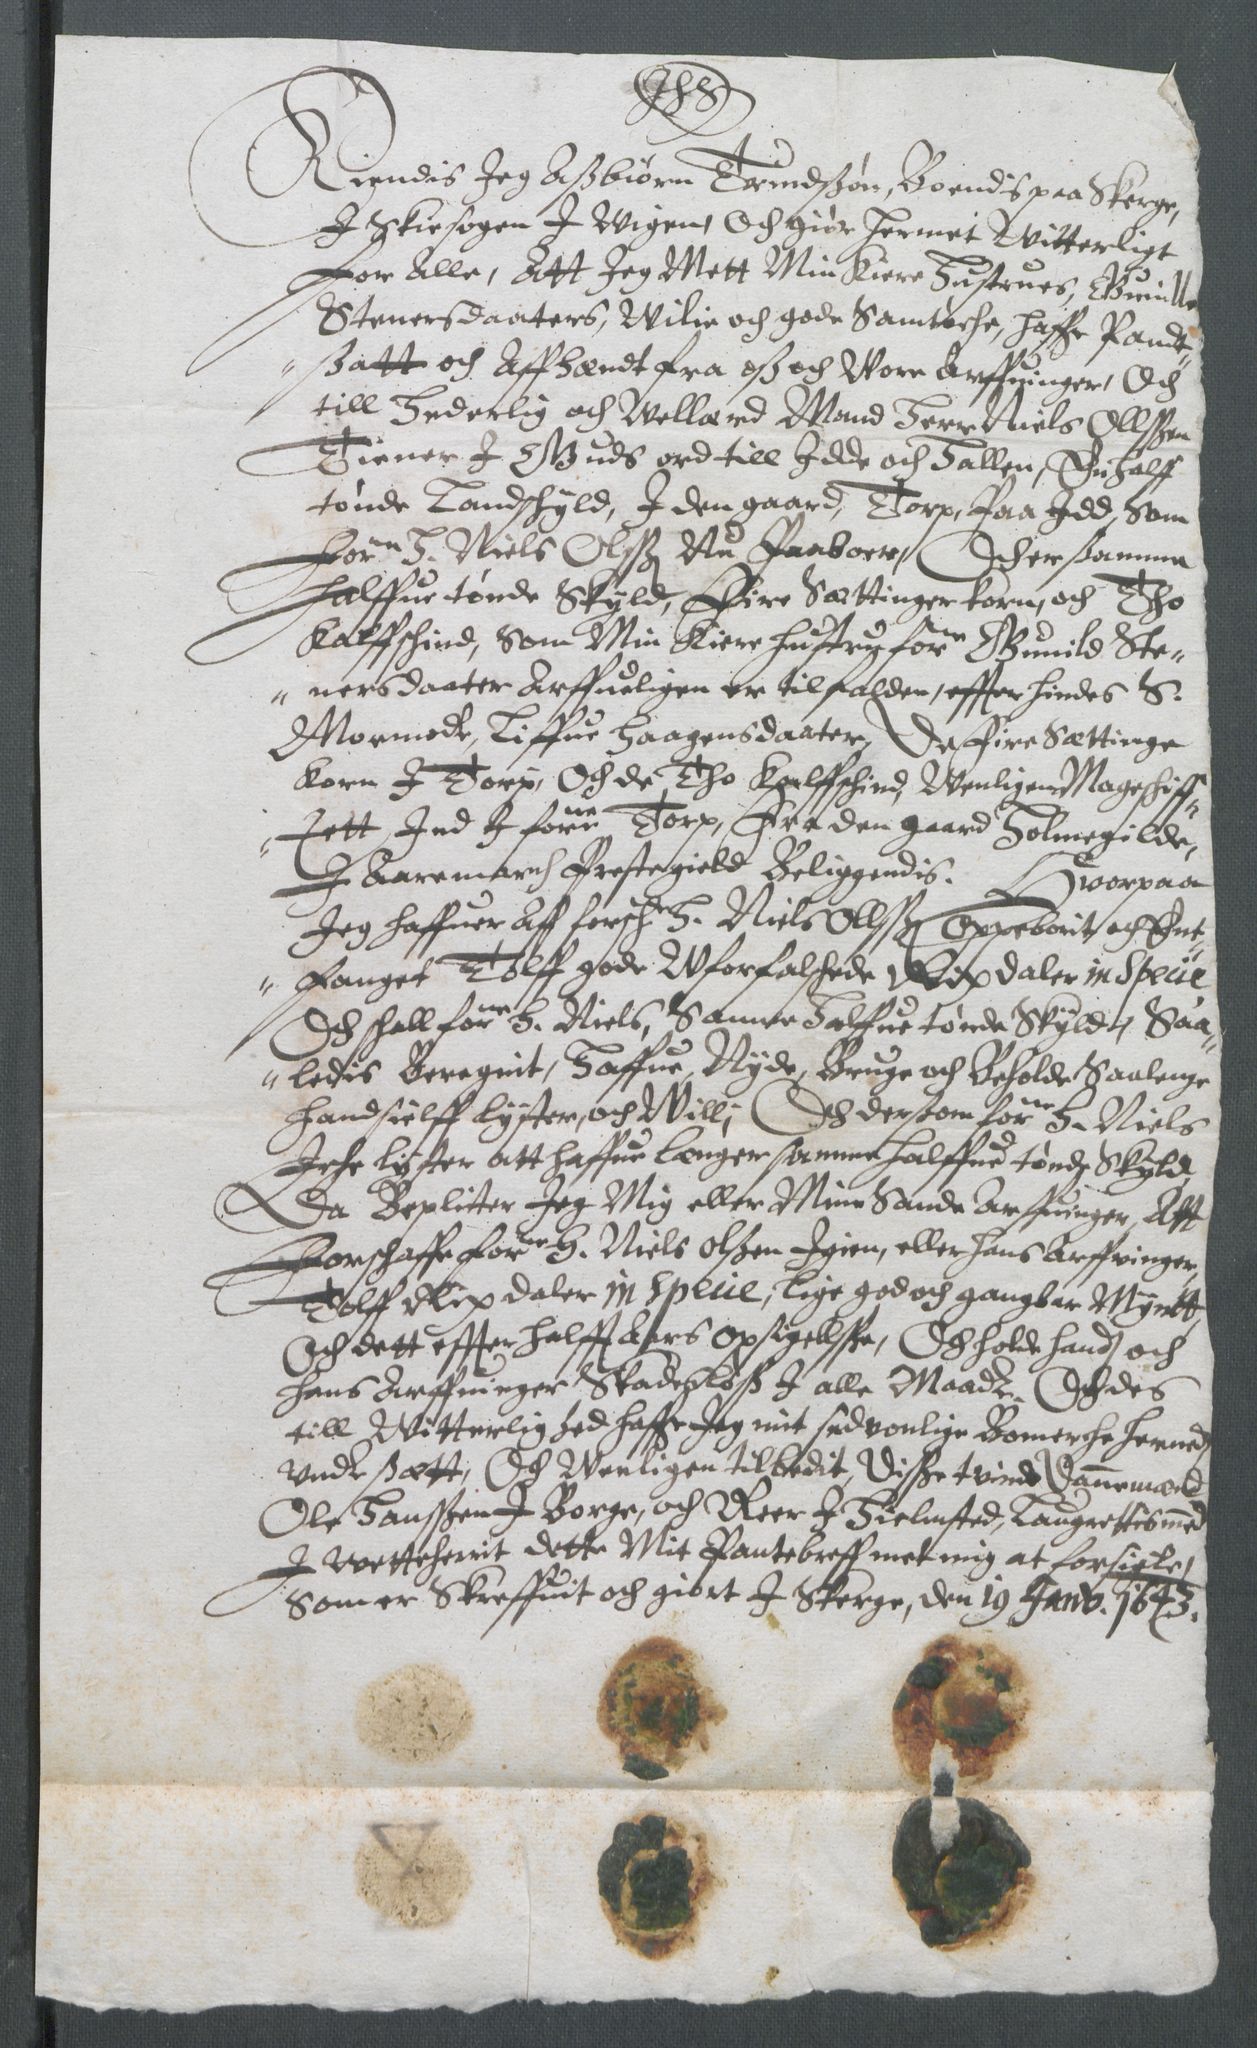 JHS
Kiendis Jeg Aßbiørn Trindßøn, Boendis paa Skerge,
J Skiesogen J Wigen, Och giør hermet Witterligt
for Alle, Att Jeg Mett Min Kiere Hustrues, Gunille
Stenersdaaters, Wilie och gode Samtøche, haffr Pandt¬
"satt och Affhændt fra oß och Wore Arffuinger, Och
till Hederlig och Wellærd Mand Herr Niels Ollßøn
Tiener J Guds ord till Jdde och Hallen, En halff
tønde Landschyld, J den gaard, Torp, Paa Jdd, Som
forne H. Niels Olßøn Nu Paaboer, Och er samme
halffue tønde Skyld, Fire Sættinger korn, och Tho
Kalffschind, Som Min Kiere hustru forne Gunild Ste¬
"nersdaater Arffueligen er tilfalden, effter hindes S.
Mormoder, Liffue Haagensdaater, De Fire Sættinge
korn J Torp, Och de Tho Kalffschind, Wenligen Mageschiff¬
"tett Jnd J forne Torp, Fra den gaard Holmegilde,
J Aaremarch Prestegield Beliggendis. Huorpaa
Jeg haffuer Aff forschr: H. Niels Ollßøn Oppeborit och Ent¬
"fanget Tolff gode Wforfalschede Rix daler in Specie
Och schall forne H. Niels, Samme Halffue tønde Skyld, Saa¬
"ledis Beregnit, Haffue, Nyde, Bruge och Beholde Saalenge
hand sielff lyster, och Will; Och dersom forne H. Niels
Jche lyster att haffue længer samme halffue tønde Skyld,
Da Beplicter Jeg Mig eller Mine Sande Arffuinger, Att
forschaffe forne H. Niels Olßen Jgien, eller hans Arffvinger,
Tolff Rix daler in Specie, lige god och gangbar Myntt,
Och dett effter halfft Aars opsigellße, Och holde hand och
hans Arffuinger Skadesløß J alle Maader. Och des
till Witterlighed haffr Jeg mit sedvonlige Bomerche herned
vnder satt, Och Wenligen tilbedit, Disße tvinde Dannemænd
Ole Hanßøen J Borge, och Reer J Hielmsted, Laugrettismend
J wetteherrit dette Mit Pantebreff met mig at forsigle,
Som er Skreffuit och giort J Skerge, den 19 Janv. 1643.